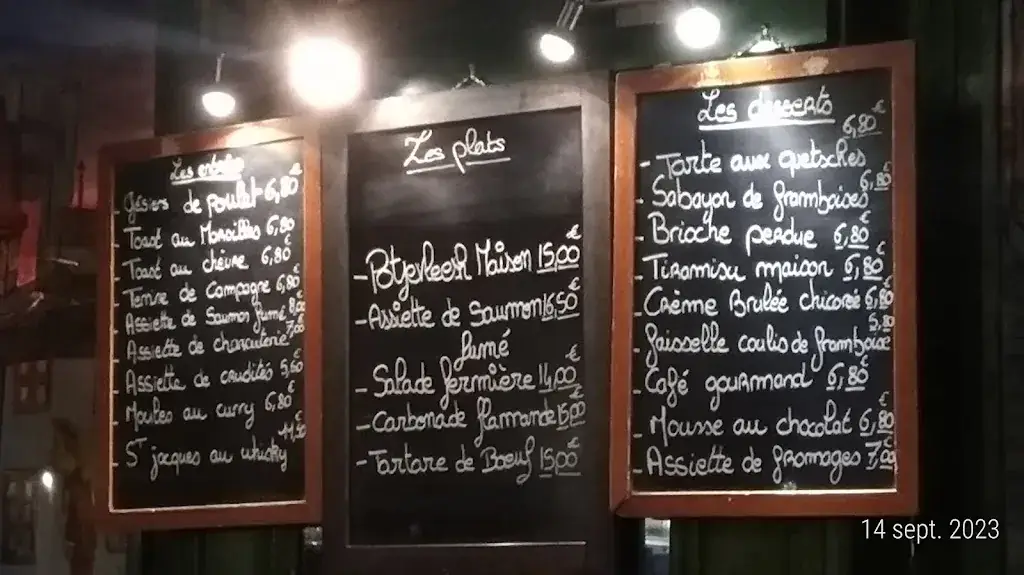 Les entrées
- Gésiers de poulet 6,80€
- Toast au Maroilles 6,80
- Toast au chèvre 6,80€
- Terrine de Campagne 6,80€
- Assiette de Saumon fumé 8,00
- Assiette de charcuterie 7,00
- Assiette de crudités 5,60
- Moules au curry 6,80€
- St jacques au whisky
Les plats
- Potjevleesh Maison 15,00€
- Assiette de Saumon 16,50€
fumé
- Salade fermière 14,00€
- Carbonade flamande 15,00€
- Tartare de Boeuf 15,00€
Les desserts
6,80€
- Tarte aux quetsches
- Sabayon de framboises 6,80€
- Brioche perdue 6,80€
- Tiramisu maison 6,80€
- Crème Brulée chicorée 6,80€
5,80
- Faisselle coulis de framboise
- Café gourmand 6,80€
- Mousse au chocolat 6,80€
- Assiette de fromages 7,00€
14 sept. 2023